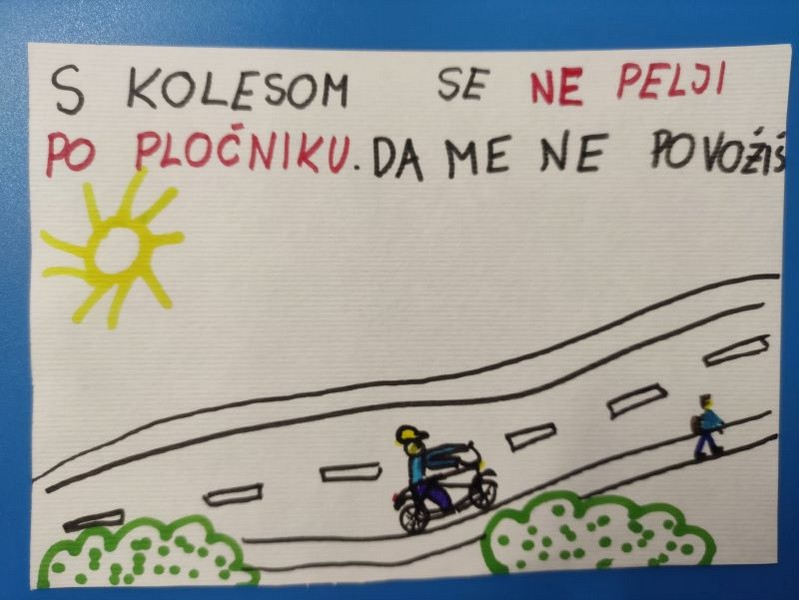 S KOLESOM SE NE PELJI
PO PLOČNIKU. DA ME NE POVOŽIŠ